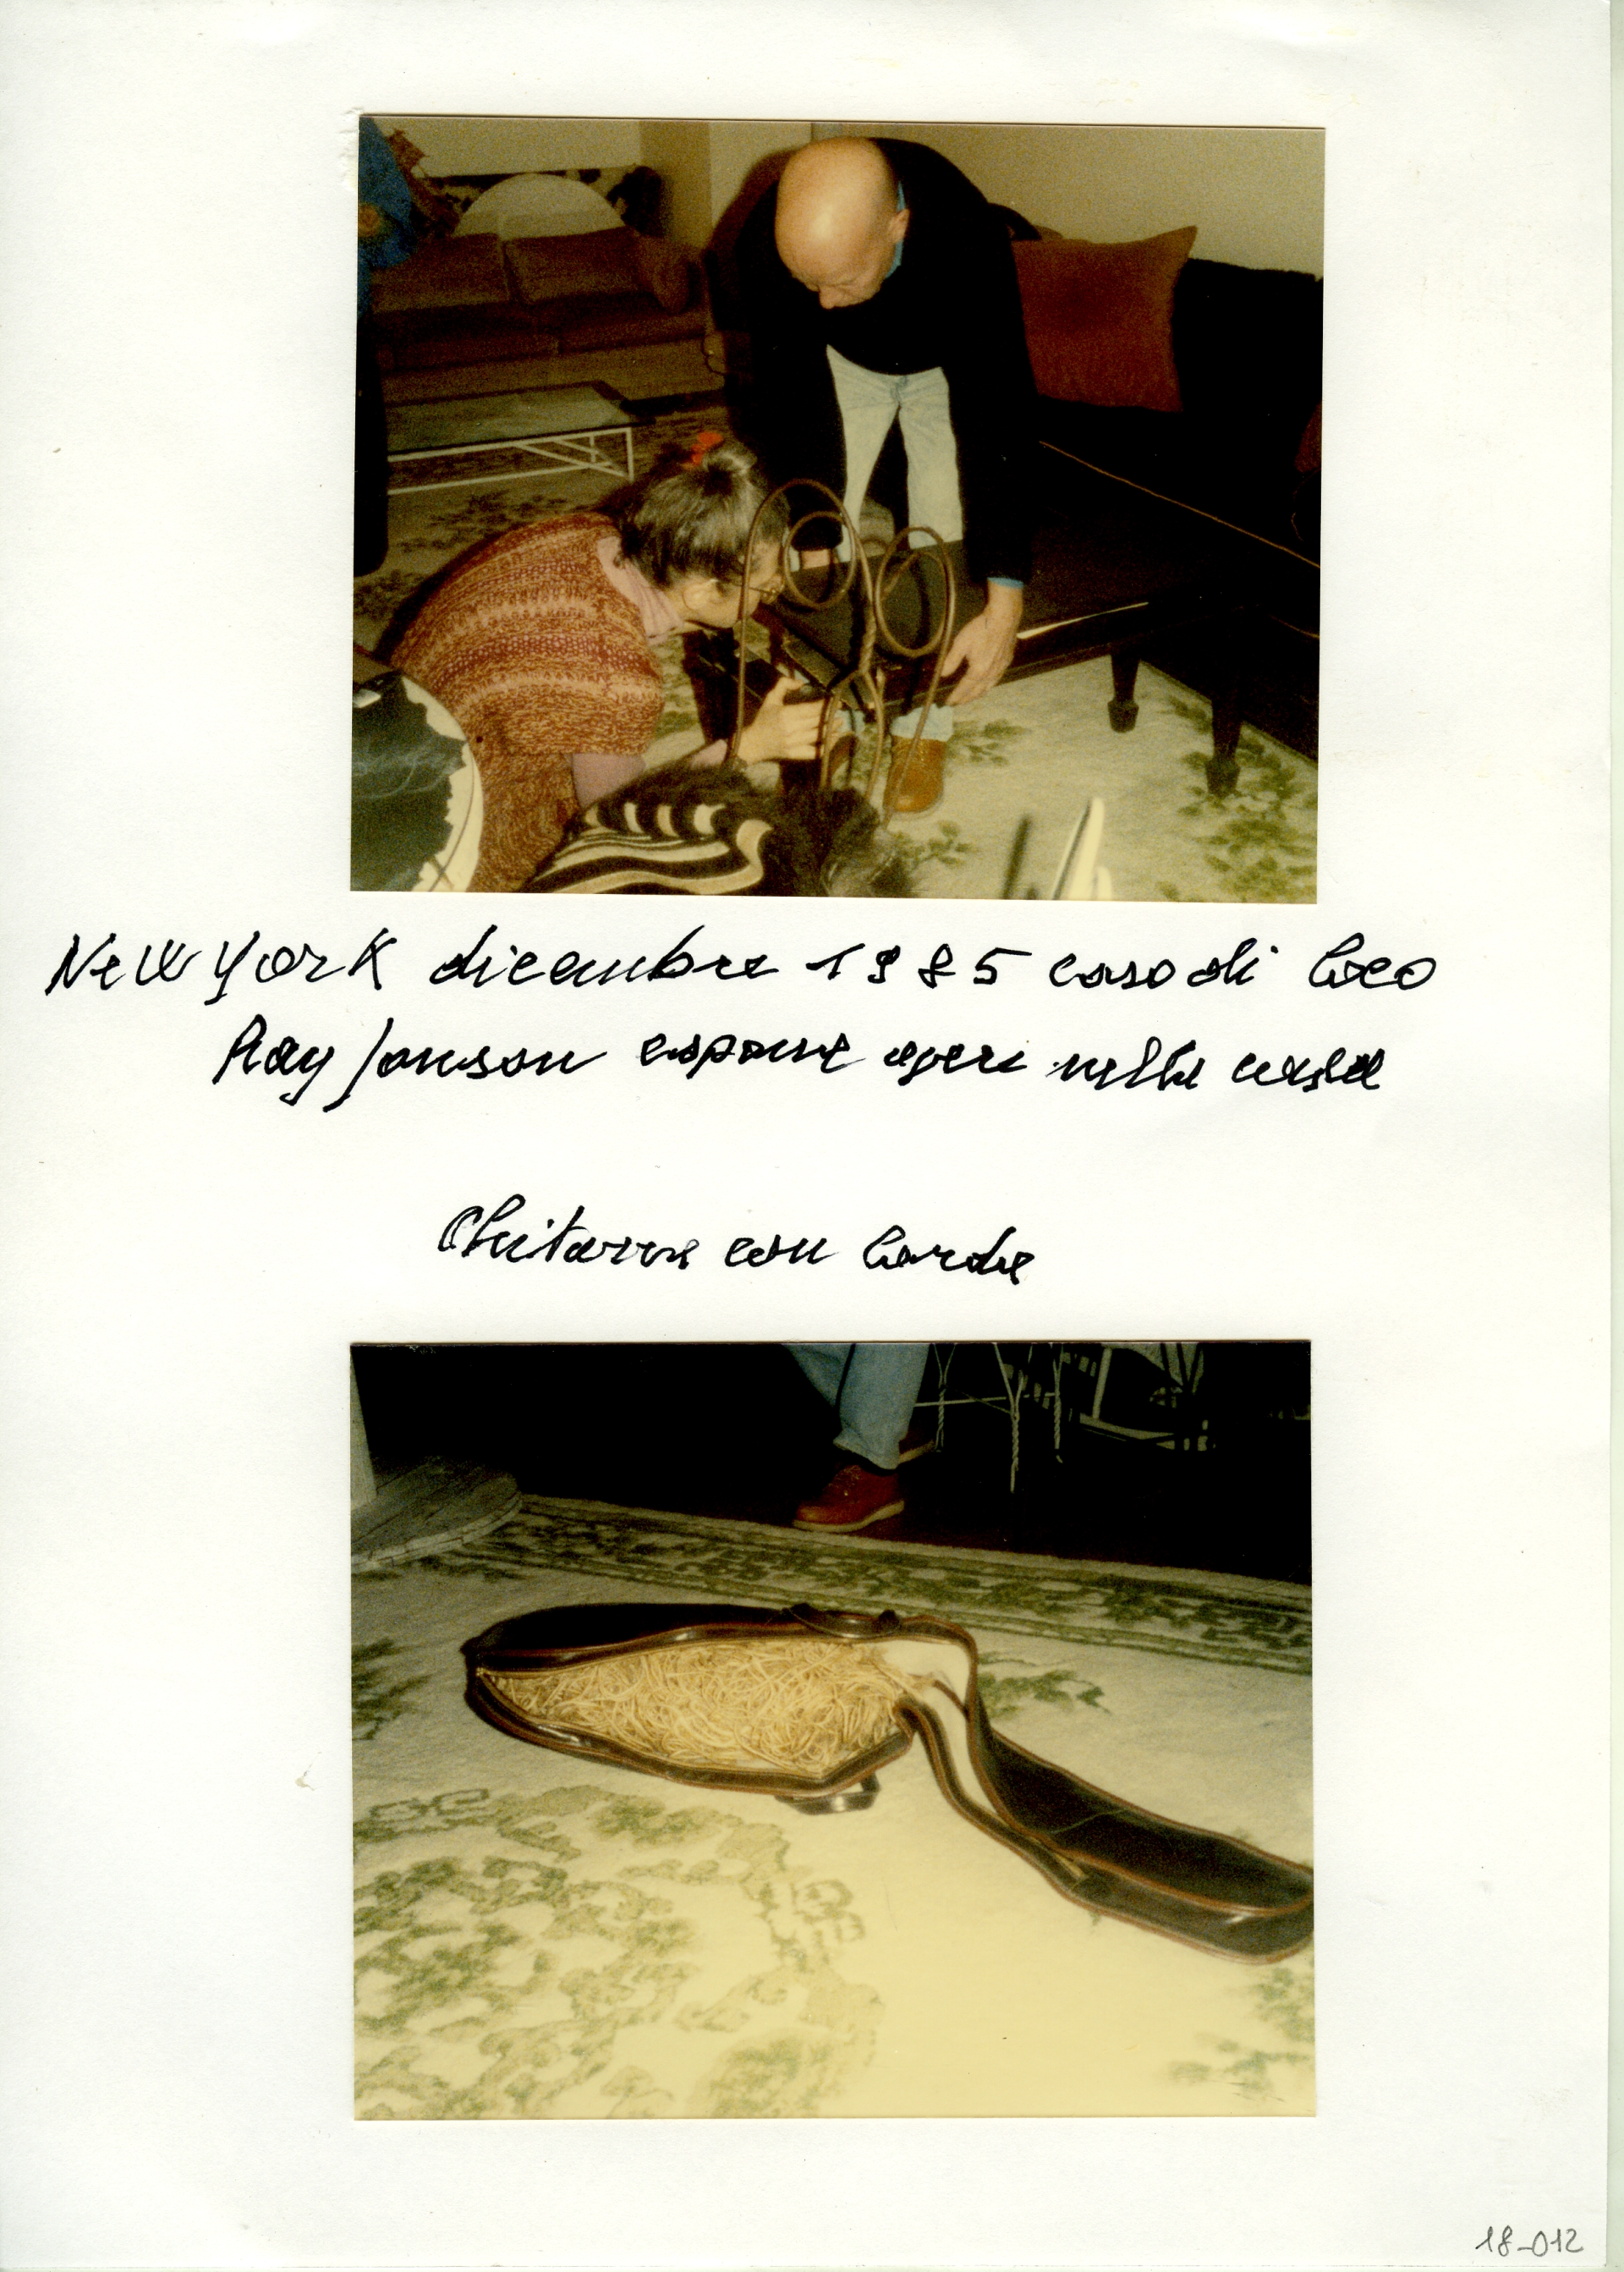 New York dicembre 1985 casa di Coco
Ray Jonson espone opere nella cassa
Chitarra con corde
18-012